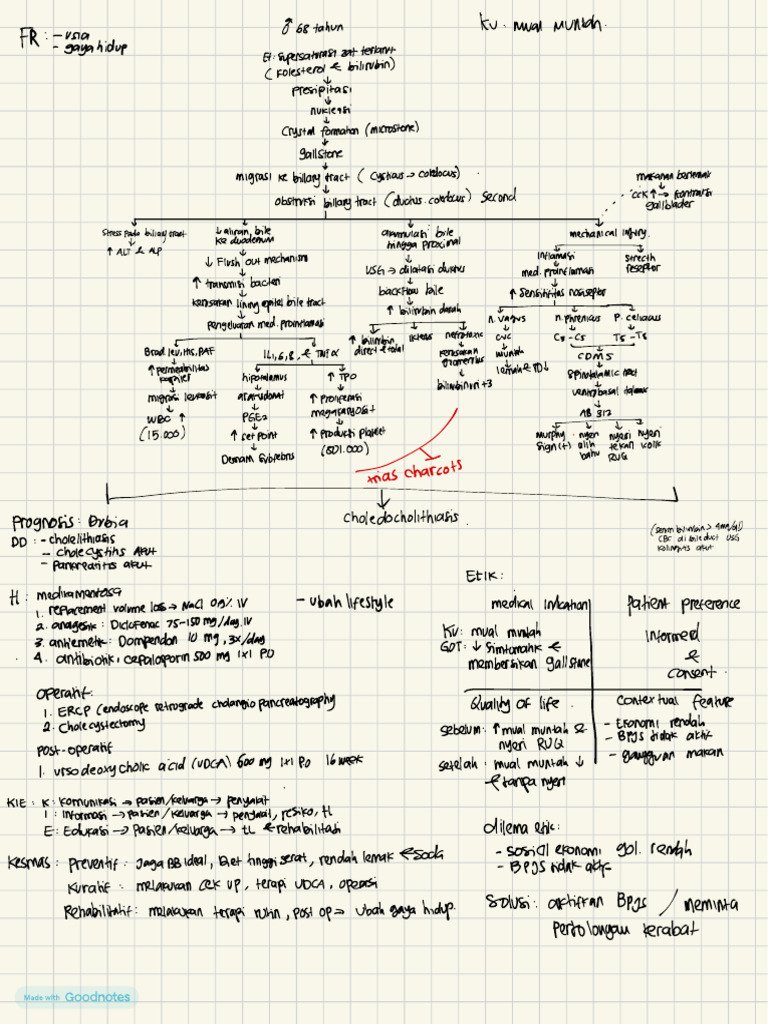 FR : - usia
- gaya hidup
♂ 68 tahun
KU : mual muntah.
Et : supersaturasi zat terlarut
(kolesterol & bilirubin)
↓
presipitasi
↓
nukleasi
↓
Crystal formation (microstone)
↓
gallstone
↓
migrasi ke biliary tract (cysticus → coledocus)
↓
obstruksi biliary tract (ductus coledocus) second
makanan berlemak
↓
CCK ↑ → kontraksi
gallbladder
Stress pada biliary tract
↓
↑ ALT & ALP
↓ aliran bile
ke duodenum
↓
↓ Flush out mechanism
↓
↑ transmisi bacteri
↓
kerusakan lining epitel bile tract
↓
pengeluaran med. proinflamasi
Bradi, leu, His, PAF
↓
↑ permeabilitas
kapiler
↓
migrasi leukosit
↓
WBC ↑
(15.000)
IL1, 6, 8, & TNF α
hipotalamus
↓
as. arakidonat
↓
PGE2
↓
↑ set point
↓
Demam subfebris
↑ TPO
↓
↑ proliferasi
megakaryosit
↓
↑ Produksi platelet
(501.000)
akumulasi bile
hingga proximal
↓
USG → dilatasi duktus
↓
backflow bile
↓
↑ bilirubin darah
↑ bilirubin
direct & total
ikterus
nefrotoxic
↓
kerusakan
glomerulus
↓
bilirubinuri +3
mechanical injury
inflamasi
↓
med. proinflamasi
↓
↑ Sensitifitas nosiseptor
Stretch
reseptor
n. vagus
↓
CVC
↓
muntah
↓
lemah & TD↓
n. phrenicus
↓
C3 - C5
P. celiacus
↓
T5 - T9
CDMS
↓
Spinotalamic tract
↓
ventrobasal talamus
↓
AB 312
murphy
sign (+)
nyeri
alih
bahu
nyeri
tekan
RUQ
nyeri
kolik
trias charcots
Choledocholithiasis
(serum bilirubin > 4mg/dl)
CBC di bile duct USG
kolangitis akut
Prognosis : Dubia
DD : - cholelithiasis
- cholecystitis akut
- pankreatitis akut
tl : medikamentosa
1. replacement volume loss → NaCl 0,9% IV
2. analgesik : Diclofenac 75-150 mg/day IV
3. antiemetik : Domperidon 10 mg, 3x/day
4. antibiotik : cefalosporin 500 mg 1x1 PO
- ubah lifestyle
operatif :
1. ERCP (endoscope retrograde cholangio pancreatography
2. Cholecystectomy
post-operatif
1. ursodeoxycholic acid (UDCA) 600 mg 1x1 PO 16 week
KIE : K : komunikasi → pasien/keluarga → penyakit
I : Informasi → pasien/keluarga → penyakit, resiko, tl
E : Edukasi → Pasien/keluarga → tl & rehabilitasi
Kesmas : Preventif : Jaga BB ideal, diet tinggi serat, rendah lemak & soda
Kuratif : melakukan cek up, terapi UDCA, operasi
Rehabilitatif : melakukan terapi rutin, post op → ubah gaya hidup.
Etik :
medical indication
KU : mual muntah
GOT : ↓ Simtomatik &
membersihkan gallstone
Patient preference
Informed
&
consent
Quality of life
sebelum : ↑ mual muntah &
nyeri RUQ
setelah : mual muntah ↓
& tanpa nyeri
Contextual feature
- Ekonomi rendah
- BPJS tidak aktif
- gangguan makan
dilema etik :
- sosial ekonomi gol. rendah
- BPJS tidak aktif
Solusi : aktifkan BPJS / meminta
pertolongan kerabat
Made with Goodnotes